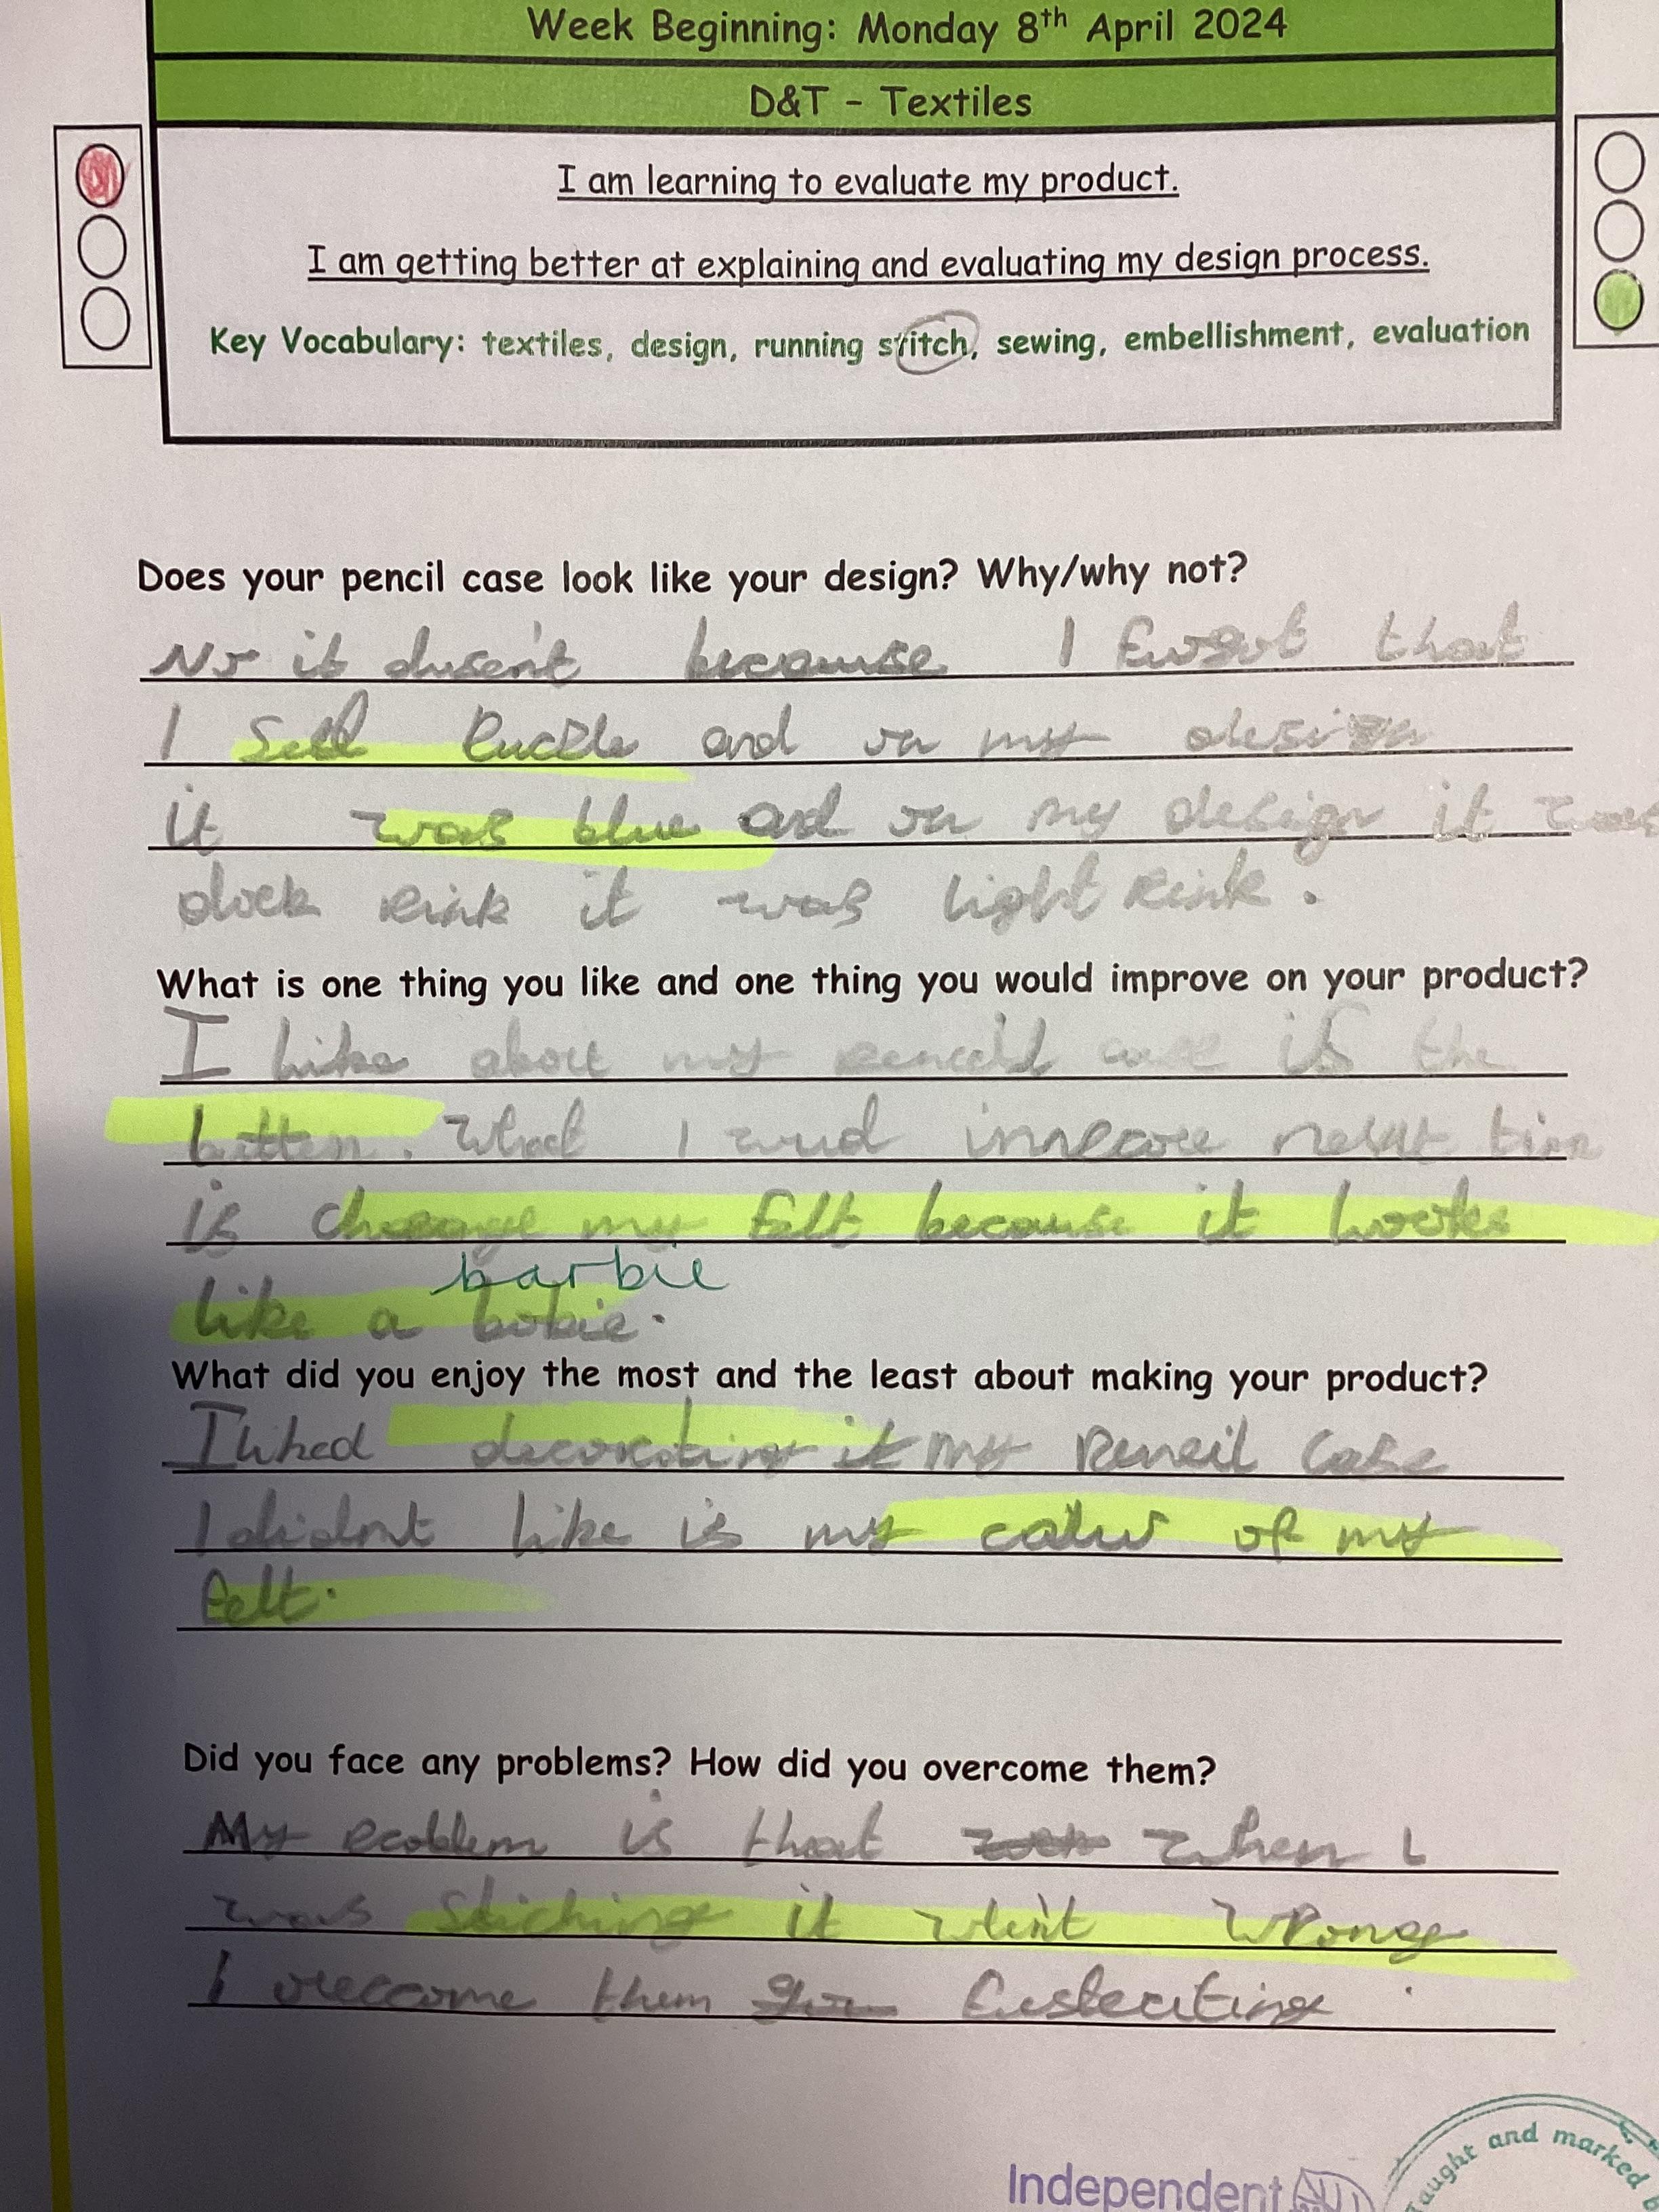 Week Beginning: Monday 8th April 2024
D&T - Textiles
I am learning to evaluate my product.
I am getting better at explaining and evaluating my design process.
Key Vocabulary: textiles, design, running stitch, sewing, embellishment, evaluation
Does your pencil case look like your design? Why/why not?
No it dusen't because I that
I and on my design
it was blue and on my design it was
pink it was light pink.
What is one thing you like and one thing you would improve on your product?
I like about my case is the
What I wud time
is change my felt because it looks
barbie
like a bobie.
What did you enjoy the most and the least about making your product?
I liked decorating it my Pencil Case
I like is my of my
felt.
Did you face any problems? How did you overcome them?
My problem is that when I
was stiching it went wrong
I overcome them
Independent
taught and marked